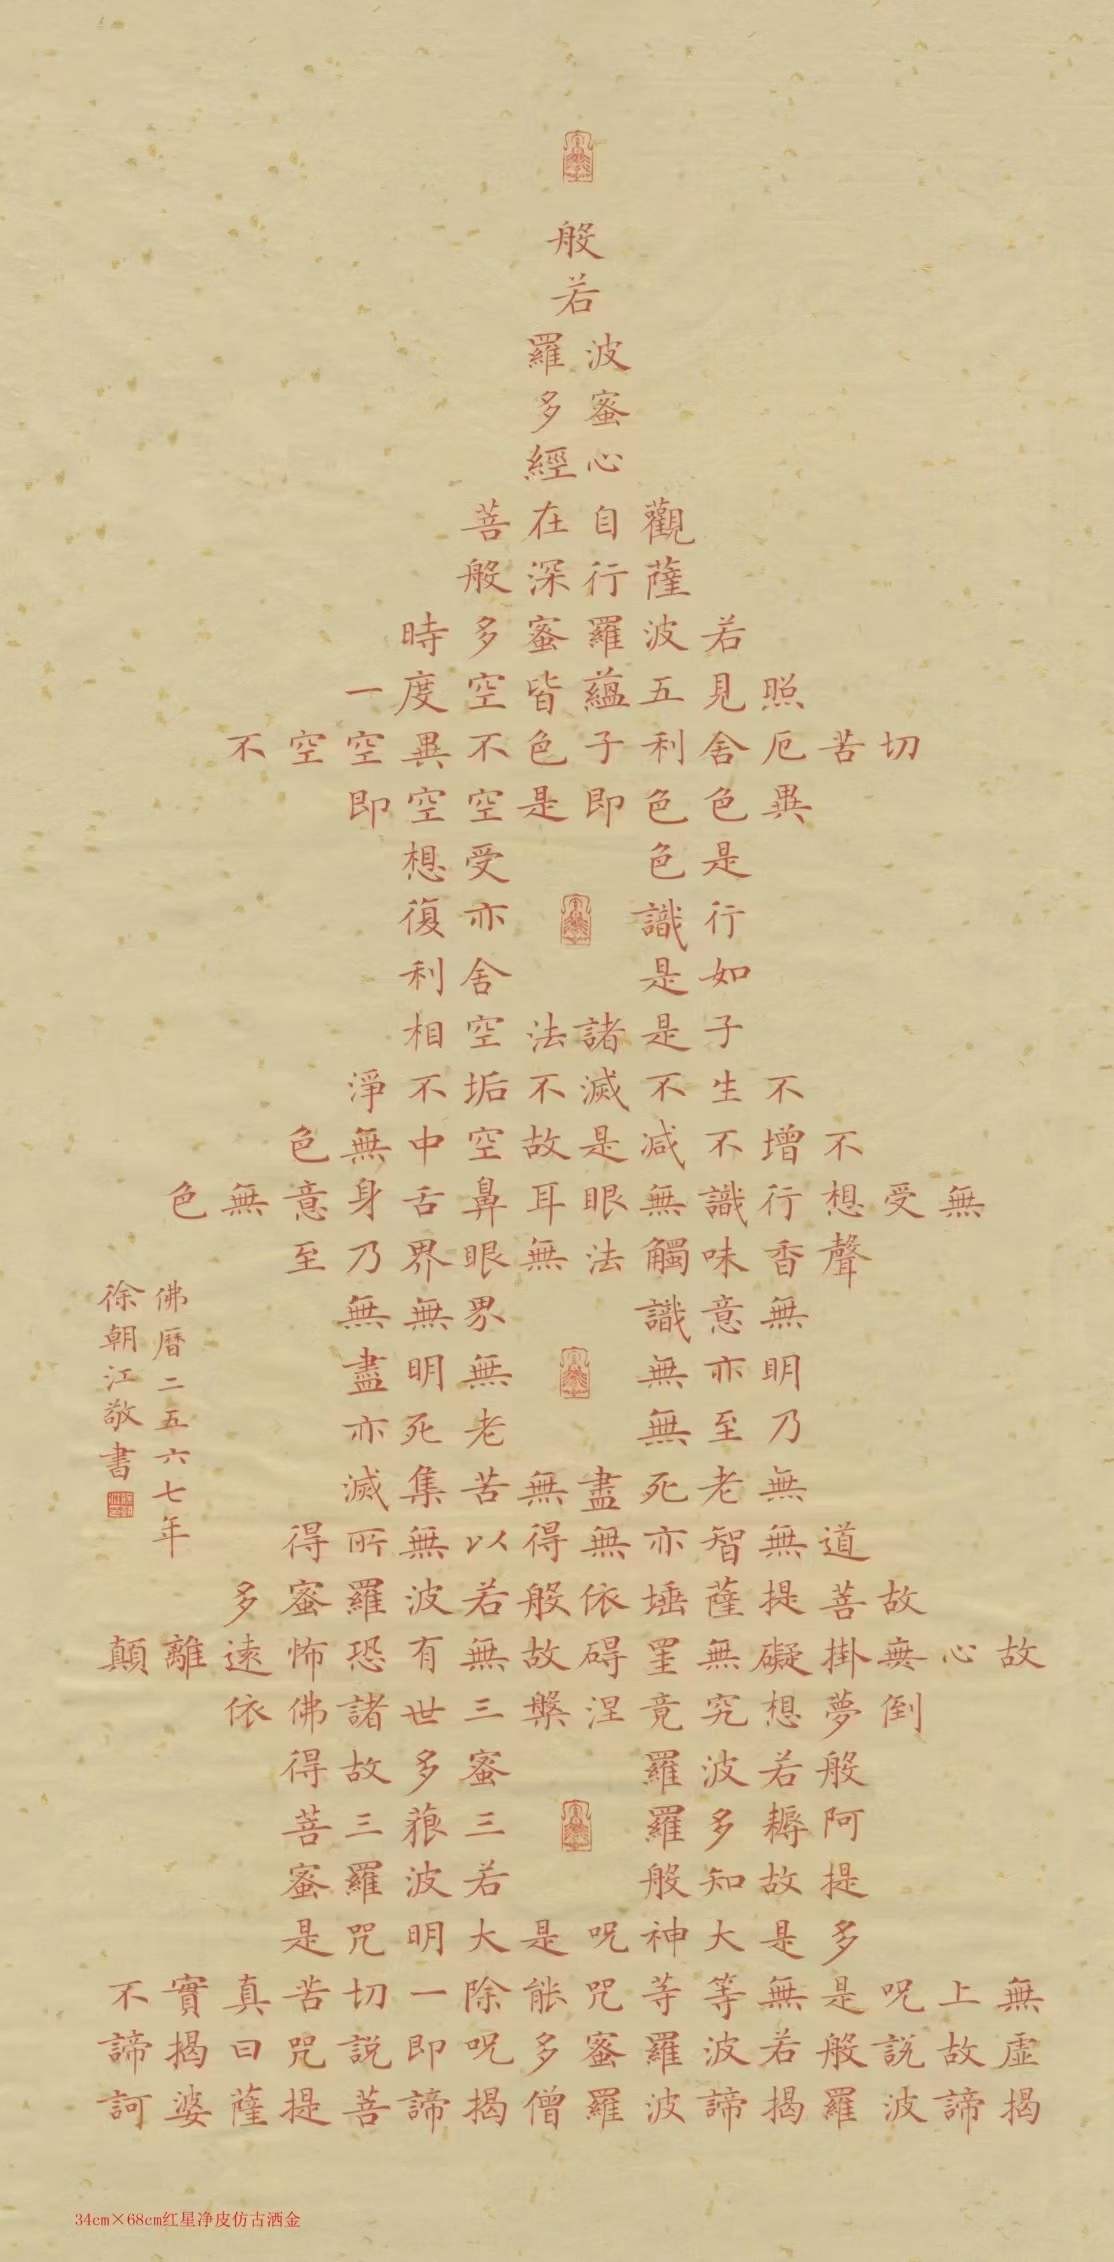 般
若
波羅
蜜多
心經
觀自在菩
薩行深般
若波羅蜜多時
照見五蘊皆空度一
切苦厄舍利子色不異空空不
異色色即是空空即
是色受想
行識亦復
如是舍利
子是諸法空相
不生不滅不垢不淨
不增不減是故空中無色
無受想行識無眼耳鼻舌身意無色
聲香味觸法無眼界乃至
無意識界無無
明亦無無明盡
乃至無老死亦
無老死盡無苦集滅
道無智亦無得以無所得
故菩提薩埵依般若波羅蜜多
故心無掛礙無罣碍故無有恐怖遠離顛
倒夢想究竟涅槃三世諸佛依
般若波羅蜜多故得
阿耨多羅三藐三菩
提故知般若波羅蜜
多是大神呪是大明咒是
無上呪是無等等咒能除一切苦真實不
虛故説般若波羅蜜多呪即説咒曰揭諦
揭諦波羅揭諦波羅僧揭諦菩提薩婆訶
佛曆二五六七年
徐朝江敬書
34cm×68cm红星净皮仿古洒金